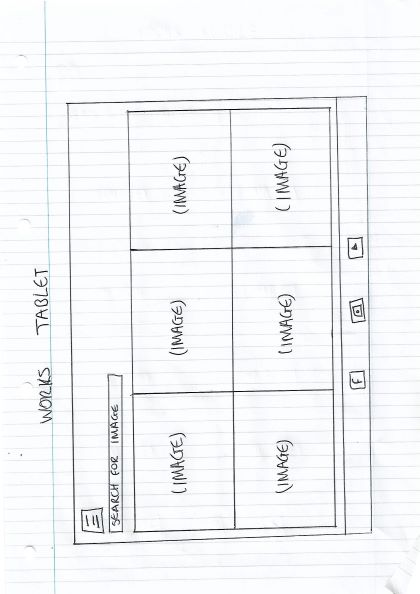 WORKS TABLET
SEARCH FOR IMAGE
(IMAGE) (IMAGE) (IMAGE)
(IMAGE) (IMAGE) (IMAGE)
F